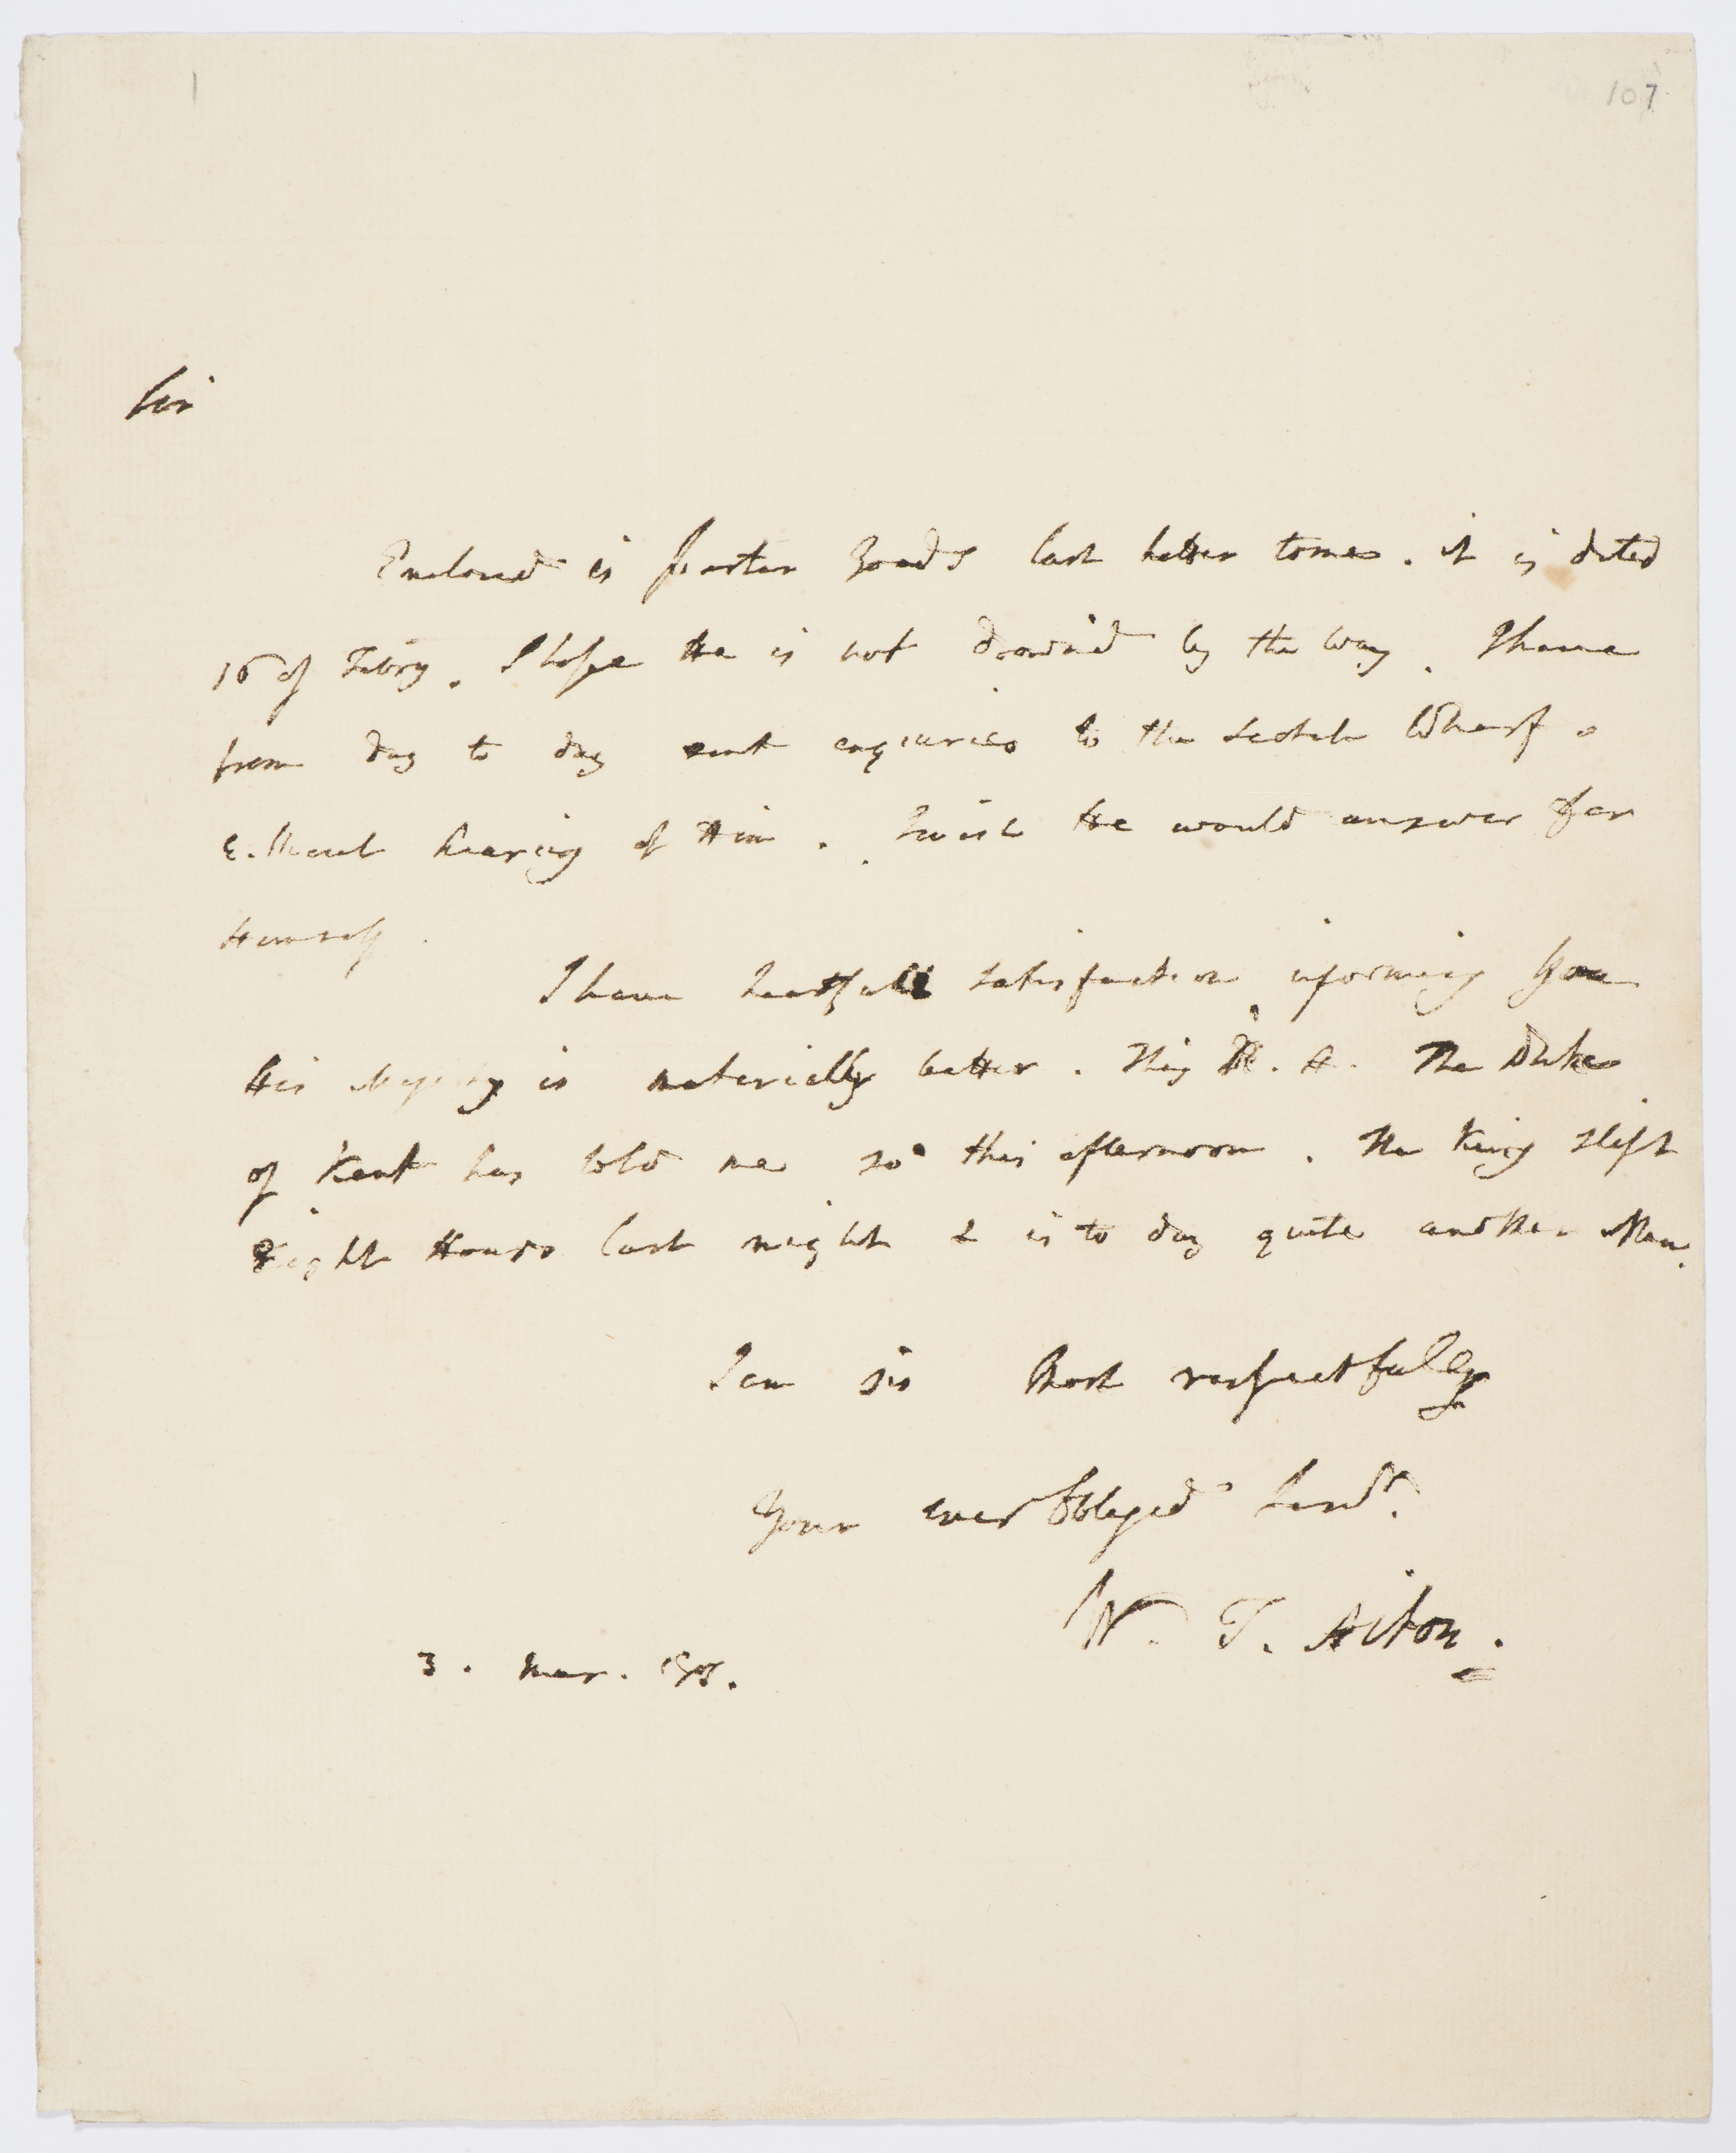 107
Sir
Enclosed is Gardner Goods last letter to me. it is dated
16 of Febry. I hope He is not drown'd by the way. I have
from day to day sent enquiries to the Scotch Wharf
without hearing of Him. I wish He would answer for
Himself.
I have heartfelt satisfaction informing You
His Majesty is materially better. His R. H. The Duke
of Kent has told me so this afternoon. The King slept
Eight Hours last night & is to day quite another Man.
I am Sir Most respectfully
Your ever Obliged Servt.
W. T. Aiton.
3. Mar.